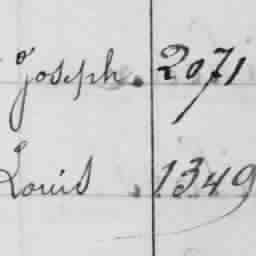 Joseph . 2071
Louis . 1349